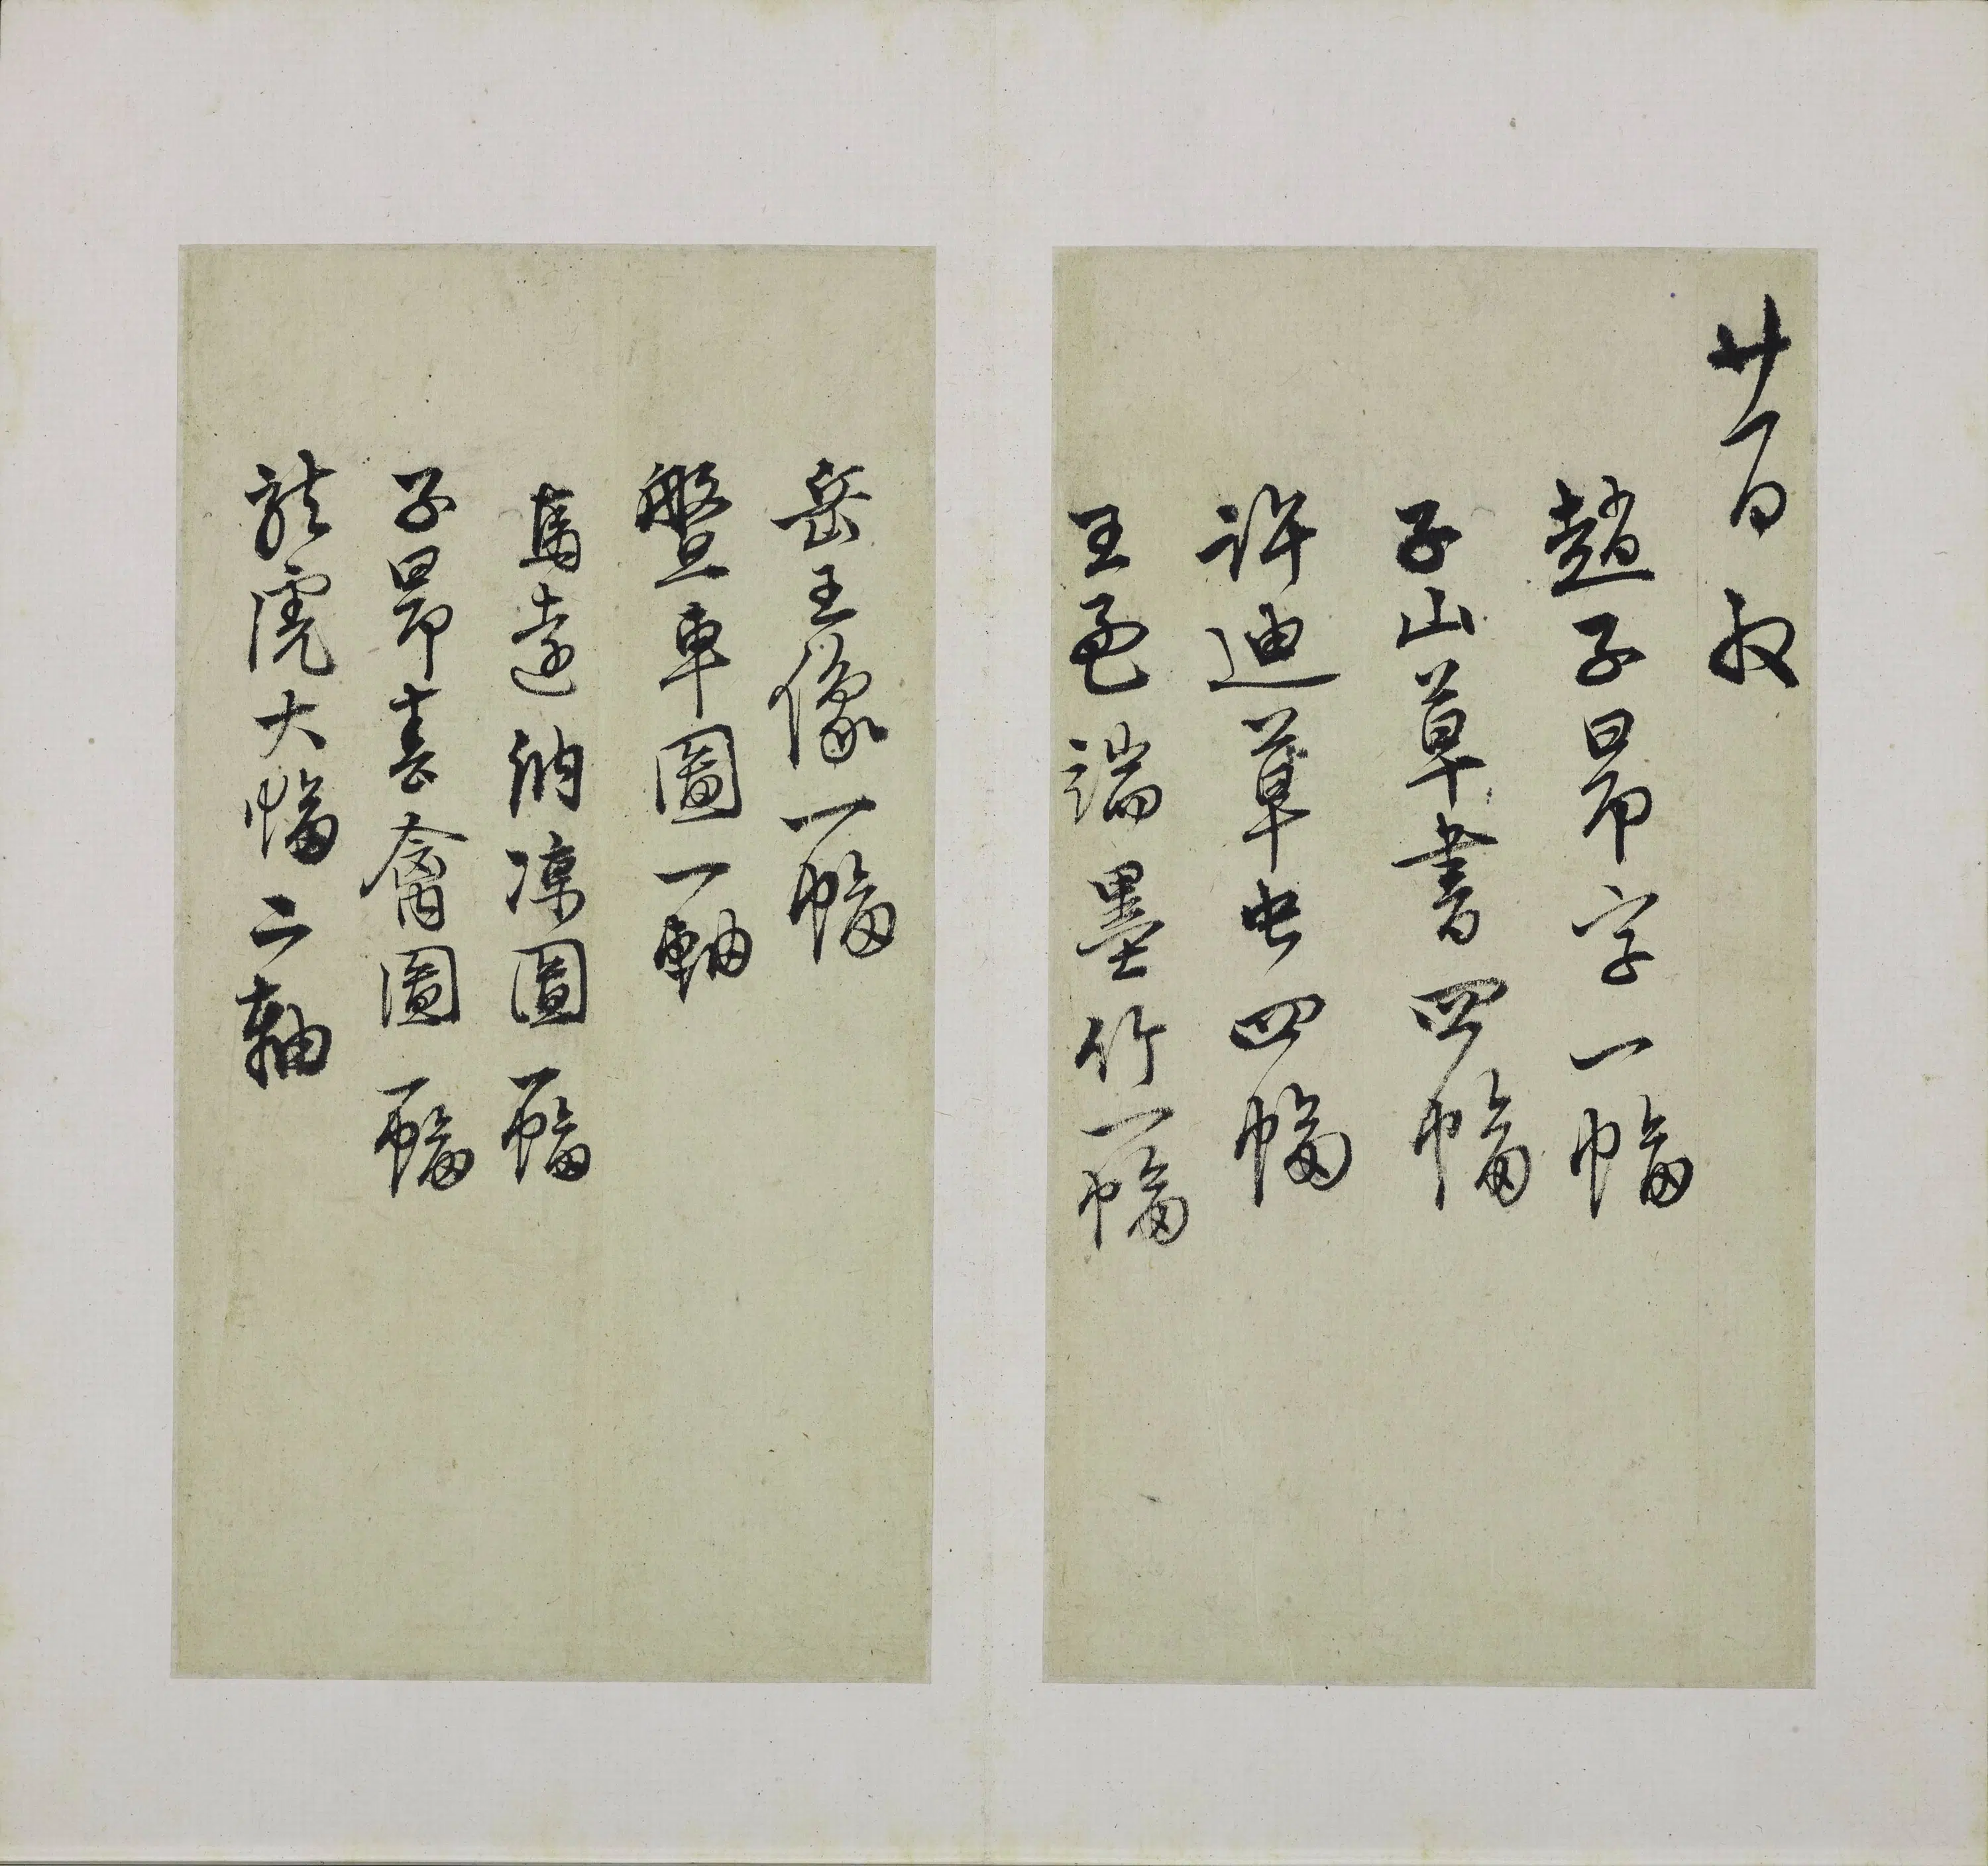 廿一日收
趙子昂字一幅
子山草書四幅
許迪草虫四幅
王孟端墨竹一幅
岳王像一幅
盤車圖一軸
馬遠納涼圖一幅
子昂喜禽圖一幅
龍虎大幅二軸